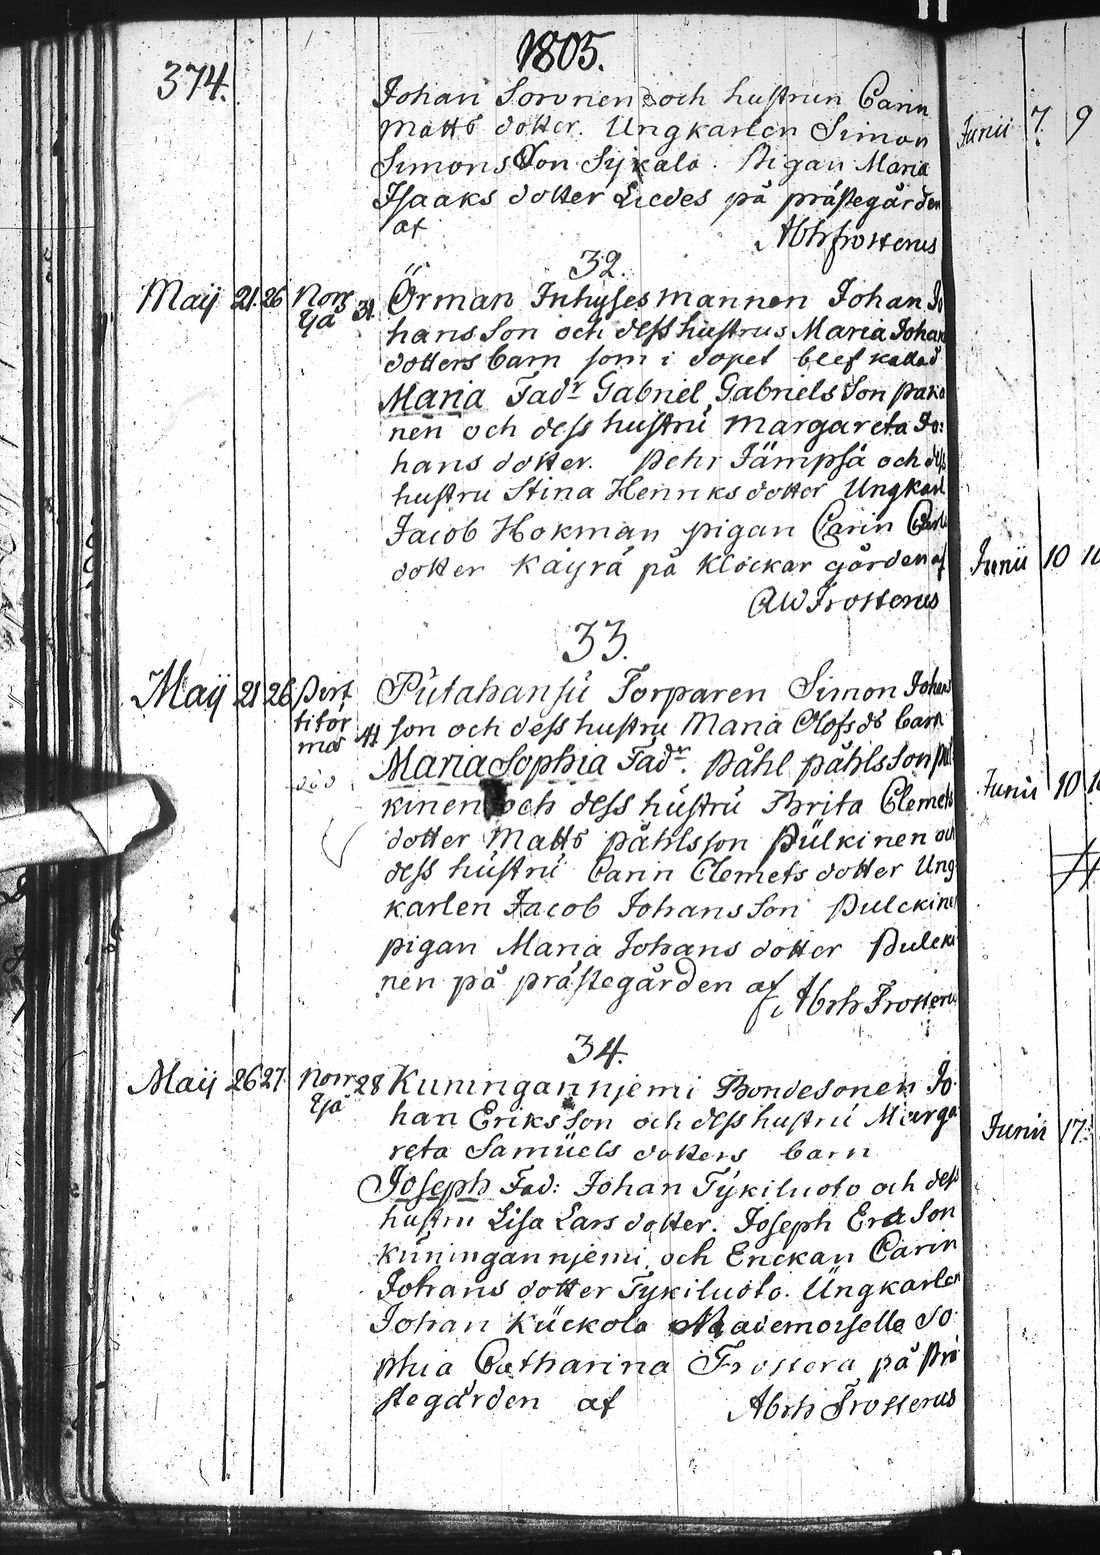 1805.
374.
Johan Soronen och hustrun Carin
Matts dotter. Ungkarlen Simon
Simons Son Sykalo. Pigan Maria
Isaaks dotter Liedes på prästegården
af Abrh Frosterus
32.
Maij 21. 26 Norr 31. Örman Inhyses mannen Johan Jo
Ijå hans Son och dess hustrus Maria Johans
dotters barn som i dopet blef kallad
Maria Fadr Gabriel Gabriels Son Paka
nen och dess hustru Margareta Jo:
hans dotter. Pehr Jämpsä och dess
hustru Stina Henriks dotter Ungkarl
Jacob Hokman pigan Carin Carls
dotter Käyrä på Klockar gården af
AW Frosterus
33.
Maij 21 26 Putahansu Torparen Simon Johans
titor 41 son och dess hustru Maria Olofsdr barn
mos Maria Sophia Fadr. Påhl Påhls Son Pul
kinen och dess hustru Brita Clemets
dotter Matts Påhlsson Pulkinen och
dess hustru Carin Clemets dotter Ung
karlen Jacob Johans Son Pulckinen
pigan Maria Johans dotter Pulcki
nen på prästegården af Abrh Frosterus
34.
Maij 26 27. Norr 28 Kuningannjemi Bondesonen Jo
Ijå han Eriks Son och dess hustru Marga
reta Samuels dotters barn
Joseph Fad: Johan Tykiluoto och dess
hustru Lisa Lars dotter. Joseph Son
Kuningannjemi och Enckan Carin
Johans dotter Tykiluoto. Ungkarlen
Johan Kuckola Mademoiselle So
phia Catharina Frostera på Prä
stegården af Abrh Frosterus
Junii 7. 9
Junii 10
Junii 10
Junii 17.